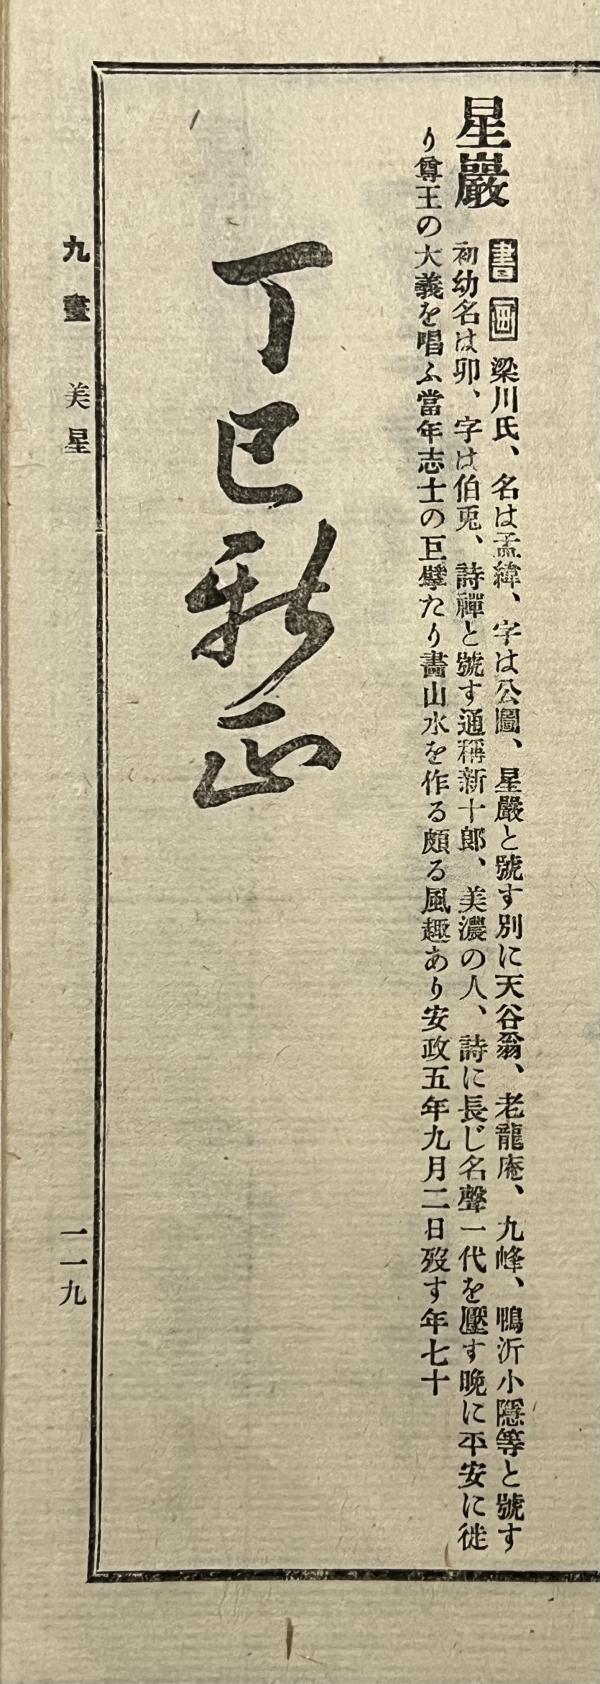 星巖
書 画 梁川氏、名は孟緯、字は公圖、星巖と號す別に天谷翁、老龍庵、九峰、鴨沂小隱等と號す
初幼名は卯、字は伯兎、詩禪と號す通稱新十郎、美濃の人、詩に長じ名聲一代を壓す晩に平安に徙
り尊王の大義を唱ふ當年志士の巨擘たり畵山水を作る頗る風趣あり安政五年九月二日歿す年七十
丁巳新正
九畫 美星 一一九